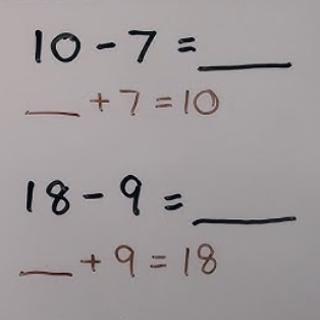 10 - 7 = ___
___ + 7 = 10
18 - 9 = ___
___ + 9 = 18